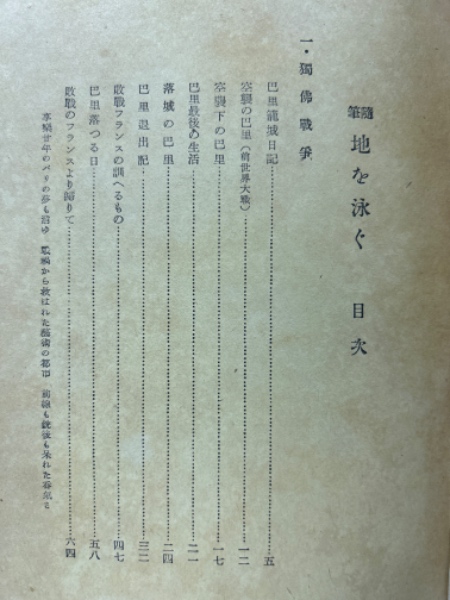 隨筆 地を泳ぐ 目次
一・獨佛戰爭
巴里籠城日記……五
空襲の巴里（前世界大戰）……一二
空襲下の巴里……一七
巴里最後の生活……二一
落城の巴里……二四
巴里脫出記……三二
敗戰フランスの訓へるもの……四七
巴里落つる日……五八
敗戰のフランスより歸りて……六四
享樂廿年のパリの夢も消ゆ 戰禍から救はれた藝術の都市 前線も銃後も呆れた暢氣さ